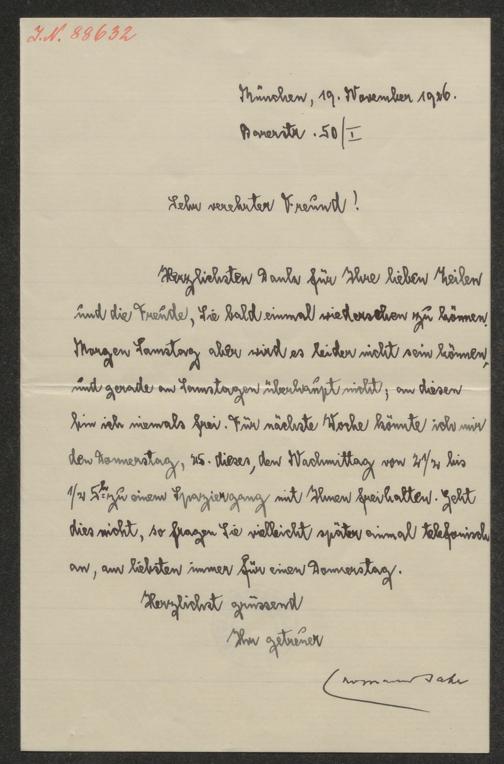 J.N. 88632
München, 19. November 1926.
Barerstr. 50/I
Sehr verehrter Freund!
Herzlichsten Dank für Ihre lieben Zeilen
und die Freude, Sie bald einmal wiedersehen zu können.
Morgen Samstag aber wird es leider nicht sein können,
und gerade an Samstagen überhaupt nicht; an diesen
bin ich niemals frei. Für nächste Woche könnte ich mir
den Donnerstag, 25. dieses, den Nachmittag von 2 1/2 bis
1/2 5 zu einem Spaziergang mit Ihnen freihalten. Geht
dies nicht, so fragen Sie vielleicht später einmal telefonisch
an, am liebsten immer für einen Donnerstag.
Herzlichst grüssend
Ihr getreuer